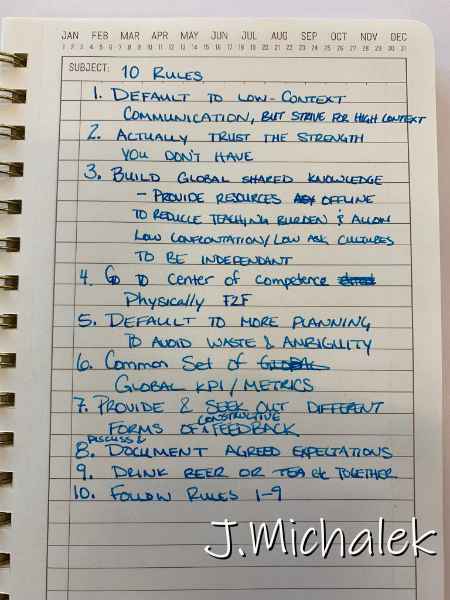 JAN FEB MAR APR MAY JUN JUL AUG SEP OCT NOV DEC
1 2 3 4 5 6 7 8 9 10 11 12 13 14 15 16 17 18 19 20 21 22 23 24 25 26 27 28 29 30 31
SUBJECT: 10 RULES
1. DEFAULT TO LOW-CONTEXT
COMMUNICATION, BUT STRIVE FOR HIGH CONTEXT
2. ACTUALLY TRUST THE STRENGTH
YOU DON'T HAVE
3. BUILD GLOBAL SHARED KNOWLEDGE
- PROVIDE RESOURCES OFFLINE
TO REDUCE TEACHING BURDEN & ALLOW
LOW CONFRONTATION/LOW ASK CULTURES
TO BE INDEPENDANT
4. GO TO CENTER OF COMPETENCE
PHYSICALLY F2F
5. DEFAULT TO MORE PLANNING
TO AVOID WASTE & AMBIGUITY
6. COMMON SET OF GLOBAL
GLOBAL KPI/METRICS
7. PROVIDE & SEEK OUT DIFFERENT
FORMS OF CONSTRUCTIVE FEEDBACK
8. DISCUSS & DOCUMENT AGREED EXPECTATIONS
9. DRINK BEER OR TEA etc TOGETHER
10. FOLLOW RULES 1-9
J.Michalek